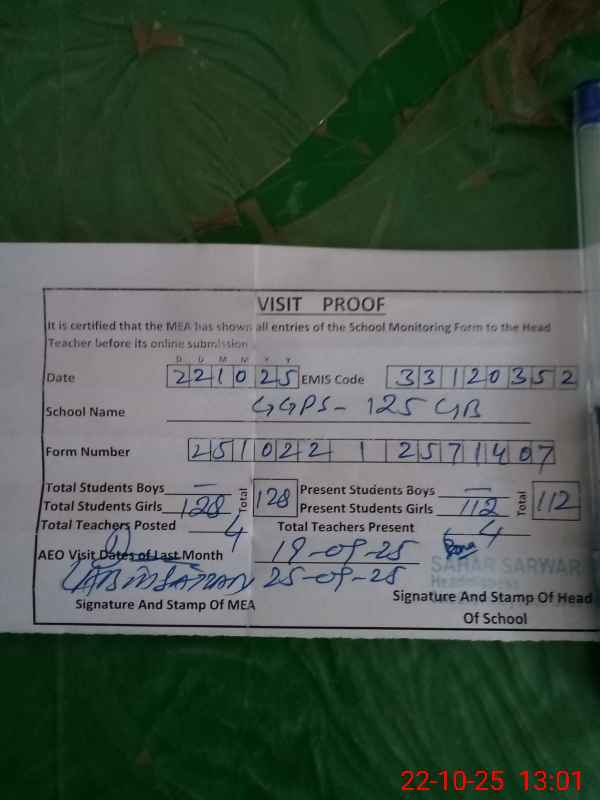 VISIT PROOF
It is certified that the MEA has shown all entries of the School Monitoring Form to the Head
Teacher before its online submission
D D M M Y Y
Date 221025 EMIS Code 33120352
School Name GGPS - 125 GB
Form Number 251022 1 2571407
Total Students Boys — Total 128 Present Students Boys — Total 112
Total Students Girls 128 Present Students Girls 112
Total Teachers Posted 4 Total Teachers Present 4
AEO Visit Dates of Last Month 19-09-25
25-09-25
SAHAR SARWAR
Headmistress
Signature And Stamp Of MEA Signature And Stamp Of Head
Of School
22-10-25 13:01